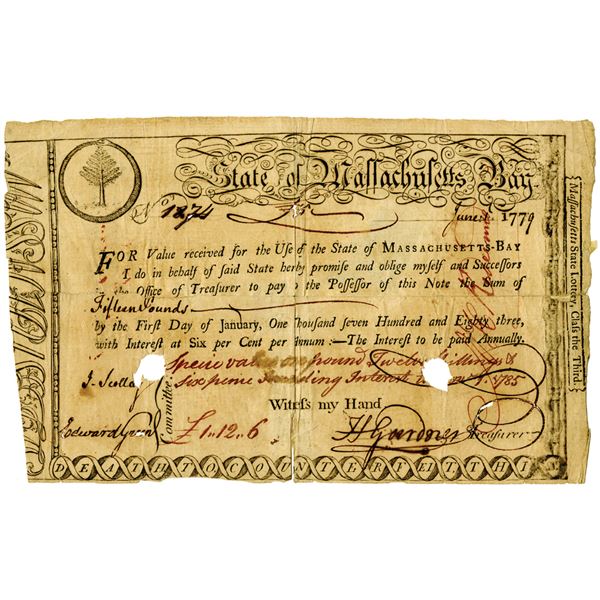 State of Massachusetts Bay.
No. 1274
June 1. 1779
FOR Value received for the Use of the State of MASSACHUSETTS-BAY
I do in behalf of said State herby promise and oblige myself and Successors
in the Office of Treasurer to pay to the Possessor of this Note the Sum of
Fifteen Pounds
by the First Day of January, One Thousand seven Hundred and Eighty three,
with Interest at Six per Cent per Annum :— The Interest to be paid Annually.
Specie value one pound Twelve Shillings &
sixpence Including Interest to 1. 1785
Witness my Hand
J. Scollay
Edward Green
Committee
£1.. 12.. 6
H Gardner Treasurer
DEATH TO COUNTERFEIT THIS
Massachusetts State Lottery, Class the Third.